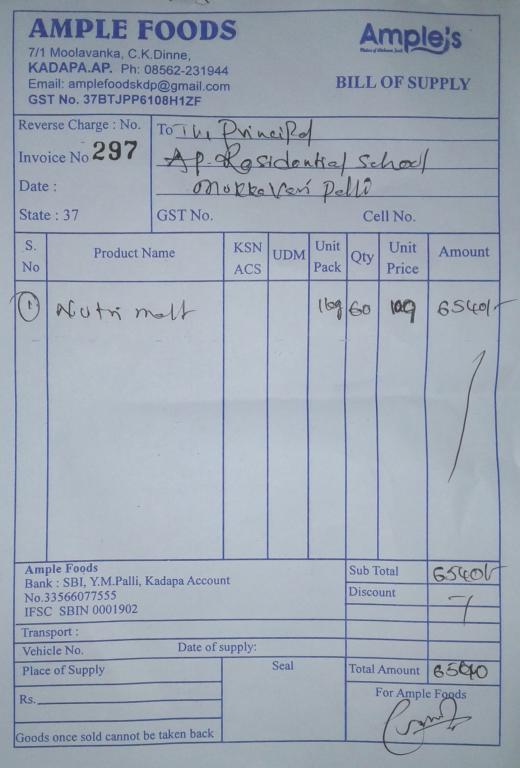 AMPLE FOODS
7/1 Moolavanka, C.K.Dinne,
KADAPA.AP. Ph: 08562-231944
Email: amplefoodskdp@gmail.com
GST No. 37BTJPP6108H1ZF
Ample's
BILL OF SUPPLY
Reverse Charge : No.
Invoice No 297
Date :
State : 37
To The Principal
A.P. Residential School
Mukkavari Palli
GST No. Cell No.
S. No Product Name KSN ACS UDM Unit Pack Qty Unit Price Amount
1 Nutri malt 1kg 60 109 6540/-
Ample Foods
Bank : SBI, Y.M.Palli, Kadapa Account
No.33566077555
IFSC SBIN 0001902
Sub Total 6540/-
Discount
Transport :
Vehicle No. Date of supply:
Place of Supply
Seal
Total Amount 6540
Rs.
For Ample Foods
Goods once sold cannot be taken back